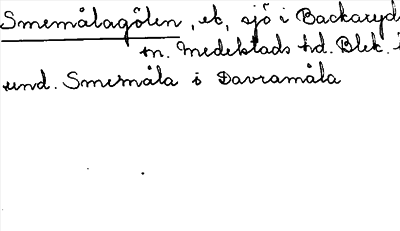 Smemålagölen, et, sjö i Backaryds
sn. Medelstads hd. Blek. i
und. Smemåla i Davramåla